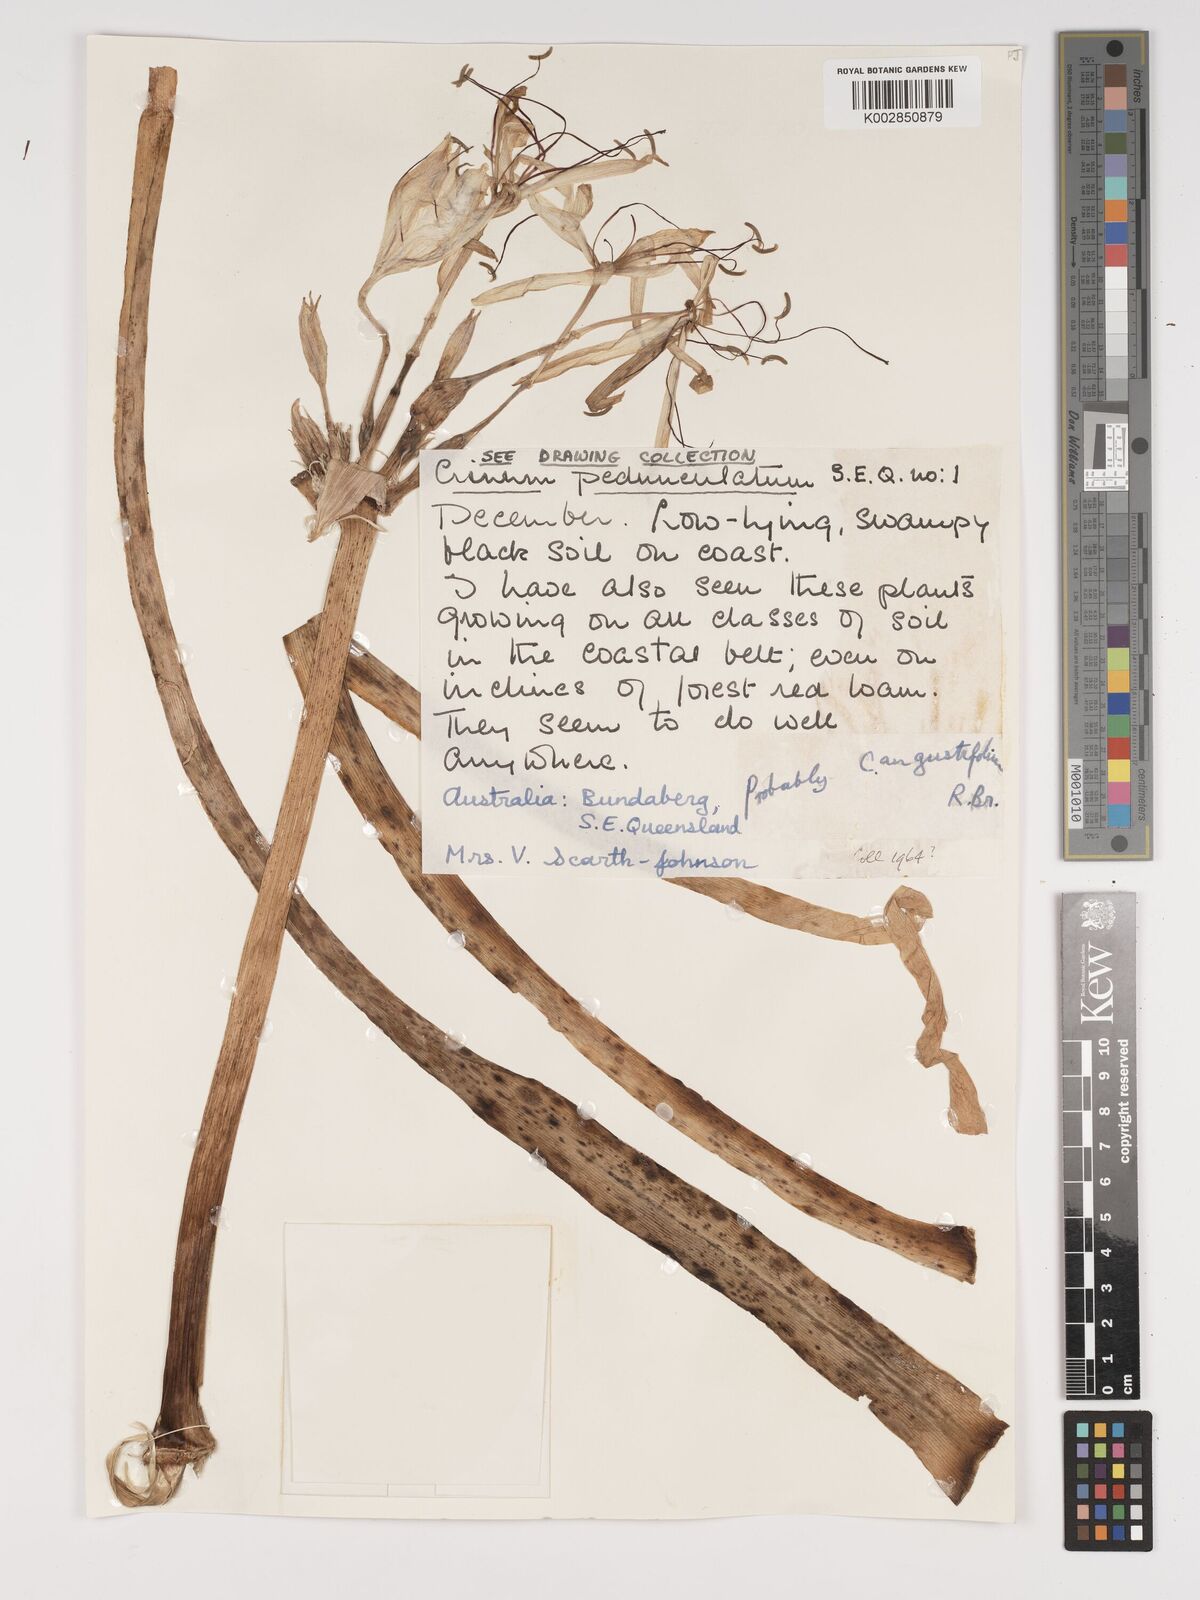 PJ
ROYAL BOTANIC GARDENS KEW
K002850879
SEE DRAWING COLLECTION
Crinum pedunculatum S.E.Q. no: 1
December. Low-lying, swampy
black soil on coast.
I have also seen these plants
growing on all classes of soil
in the coastal belt; even on
inclines of forest red loam.
They seem to do well
anywhere.
Probably C. angustifolium
R.Br.
Australia: Bundaberg,
S.E. Queensland
Mrs. V. Scarth-Johnson
Coll 1964?
inches
Density
Don Williams
centimeters
M001010
Kew
Royal Botanic Gardens
copyright reserved
10
9
8
7
6
5
4
3
2
1
0
cm